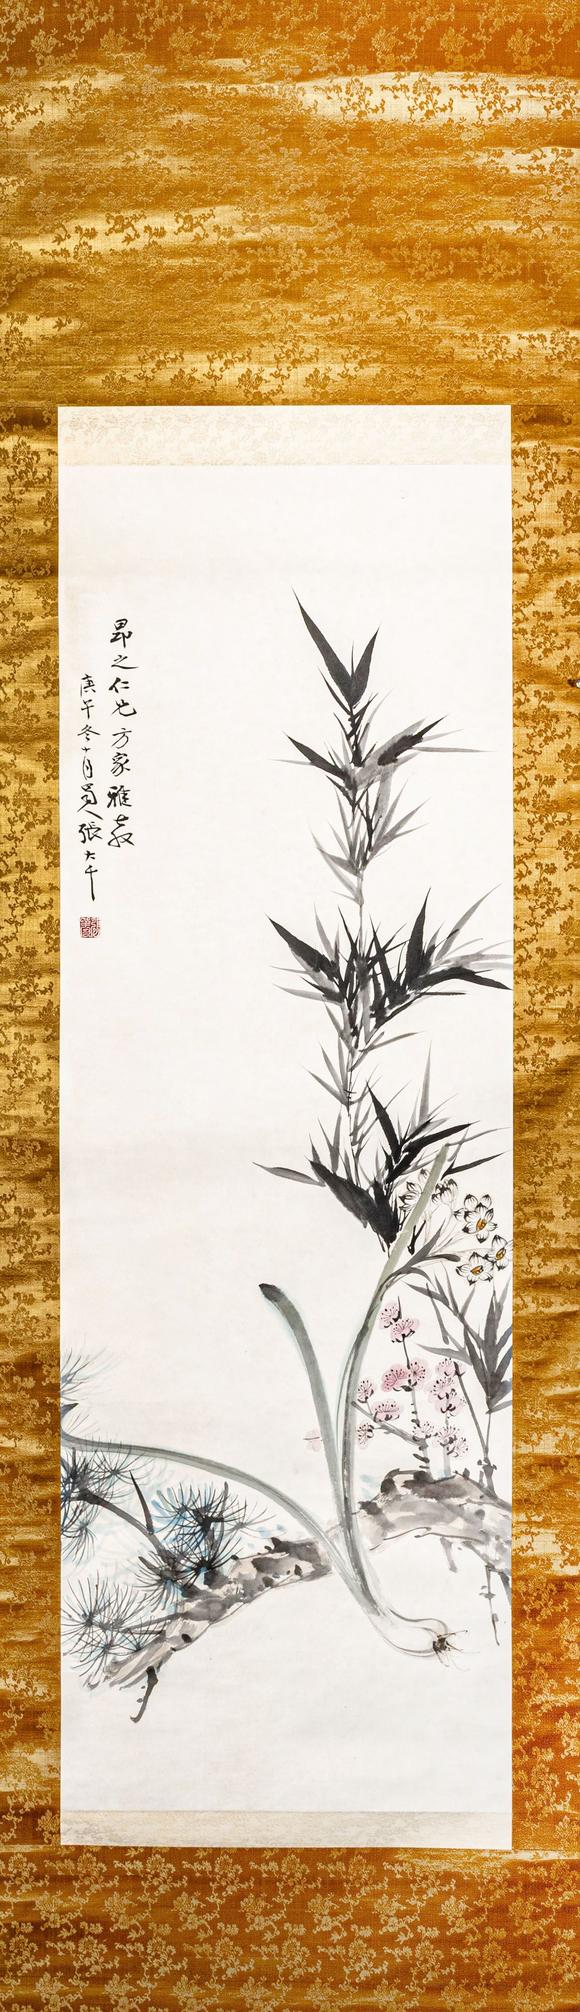 昂之仁兄方家雅教
庚午冬十月蜀人張大千